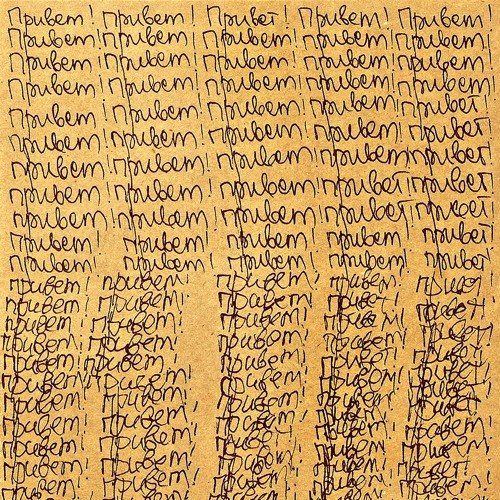 Привет! Привет! Привет! Привет! Привет!
Привет! Привет! Привет! Привет! Привет!
Привет! Привет! Привет! Привет! Привет!
Привет! Привет! Привет! Привет! Привет!
Привет! Привет! Привет! Привет! Привет!
Привет! Привет! Привет! Привет! Привет!
Привет! Привет! Привет! Привет! Привет!
Привет! Привет! Привет! Привет! Привет!
Привет! Привет! Привет! Привет! Привет!
Привет! Привет! Привет! Привет Привет!
Привет! Привет! Привет! Привет! Привет!
Привет! Привет! Привет! Привет! Привет
Привет! Привет! Привет! Привет! Привет!
Привет! Привет! Привет! Привет! Привет!
Привет! Привет! Привет! Привет! Привет!
Привет! Привет! Привет! Привет! Привет!
Привет! Привет! Привет! Привет! Привет!
Привет! Привет! Привет! Привет! Привет!
Привет! Привет! Привет! Привет! Привет!
Привет! Привет! Привет! Привет! Привет!
Привет! Привет! Привет! Привет! Привет!
Привет! Привет! Привет! Привет! Привет!